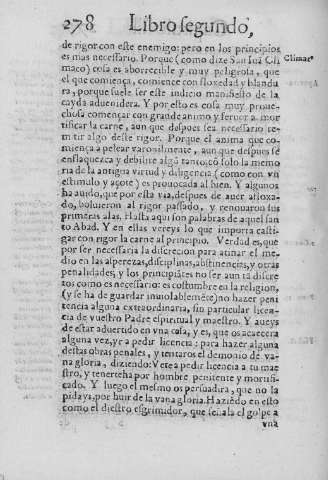 278 Libro segundo,
de rigor con este enemigo: pero en los principios
es mas necessario. Porque (como dize San Iuã Cli
maco) cosa es aborrecible y muy peligrosa, que
el que comiença, comience con floxedad y blandu
ra, porque suele ser este indicio manifiesto de la
cayda aduenidera. Y por esto es cosa muy proue-
chosa començar con grande animo y feruor a mor
tificar la carne, aun que despues sea necessario re-
mitir algo deste rigor. Porque el anima que co-
miença a pelear varonilmente, aun que despues se
enflaquezca y debilite algũ tanto, cõ solo la memo
ria de la antigua virtud y diligencia (como con vn
estimulo y açote) es prouocada al bien. Y algunos
ha auido, que por esta via, despues de auer afloxa-
do, boluieron al rigor passado, y renouaron sus
primeras alas. Hasta aqui son palabras de aquel san
to Abad. Y en ellas vereys lo que importa casti-
gar con rigor la carne al principio. Verdad es, que
por ser necessaria la discrecion para atinar el me-
dio en las asperezas, disciplinas, abstinencias, y otras
penalidades, y los principiãtes no ser aun tã discre
tos como es necessario: es costumbre en la religion,
(y se ha de guardar inuiolablemẽte) no hazer peni
tencia alguna extraordinaria, sin particular licen-
cia de vuestro Padre espiritual y maestro. Y aueys
de estar aduertido en vna cosa, y es, que os acaecera
alguna vez, yr a pedir licencia: para hazer alguna
destas obras penales, y tentaros el demonio de va-
na gloria, diziendo: Vete a pedir licencia a tu mae
stro, y tenerteha por hombre penitente y mortifi-
cado. Y luego el mesmo os persuadira, que no la
pidays, por huir de la vana gloria. Haziẽdo en esto
como el diestro esgrimidor, que señala el golpe a
vna
Climac°